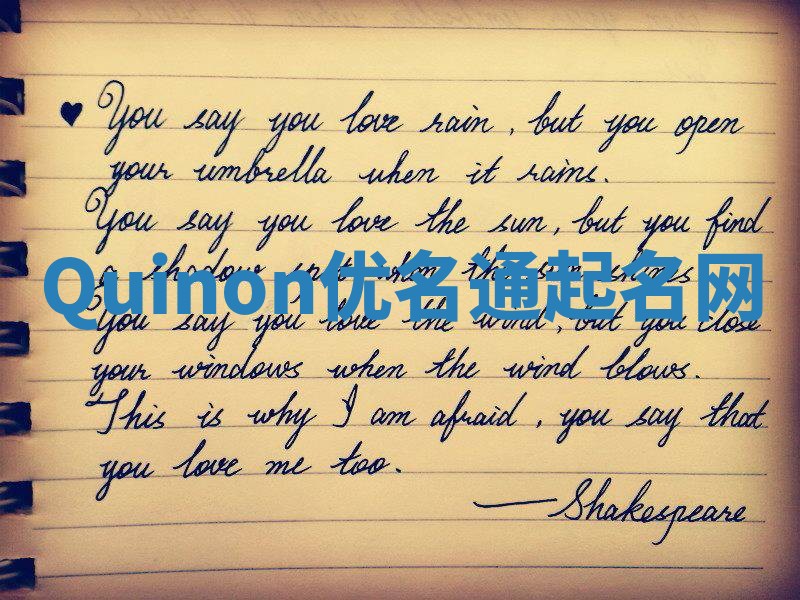 You say you love rain, but you open
your umbrella when it rains.
You say you love the sun, but you find
a shadow spot when the sun shines
Quinon优名通起名网
You say you love the wind, but you close
your windows when the wind blows.
This is why I am afraid, you say that
you love me too.
—Shakespeare